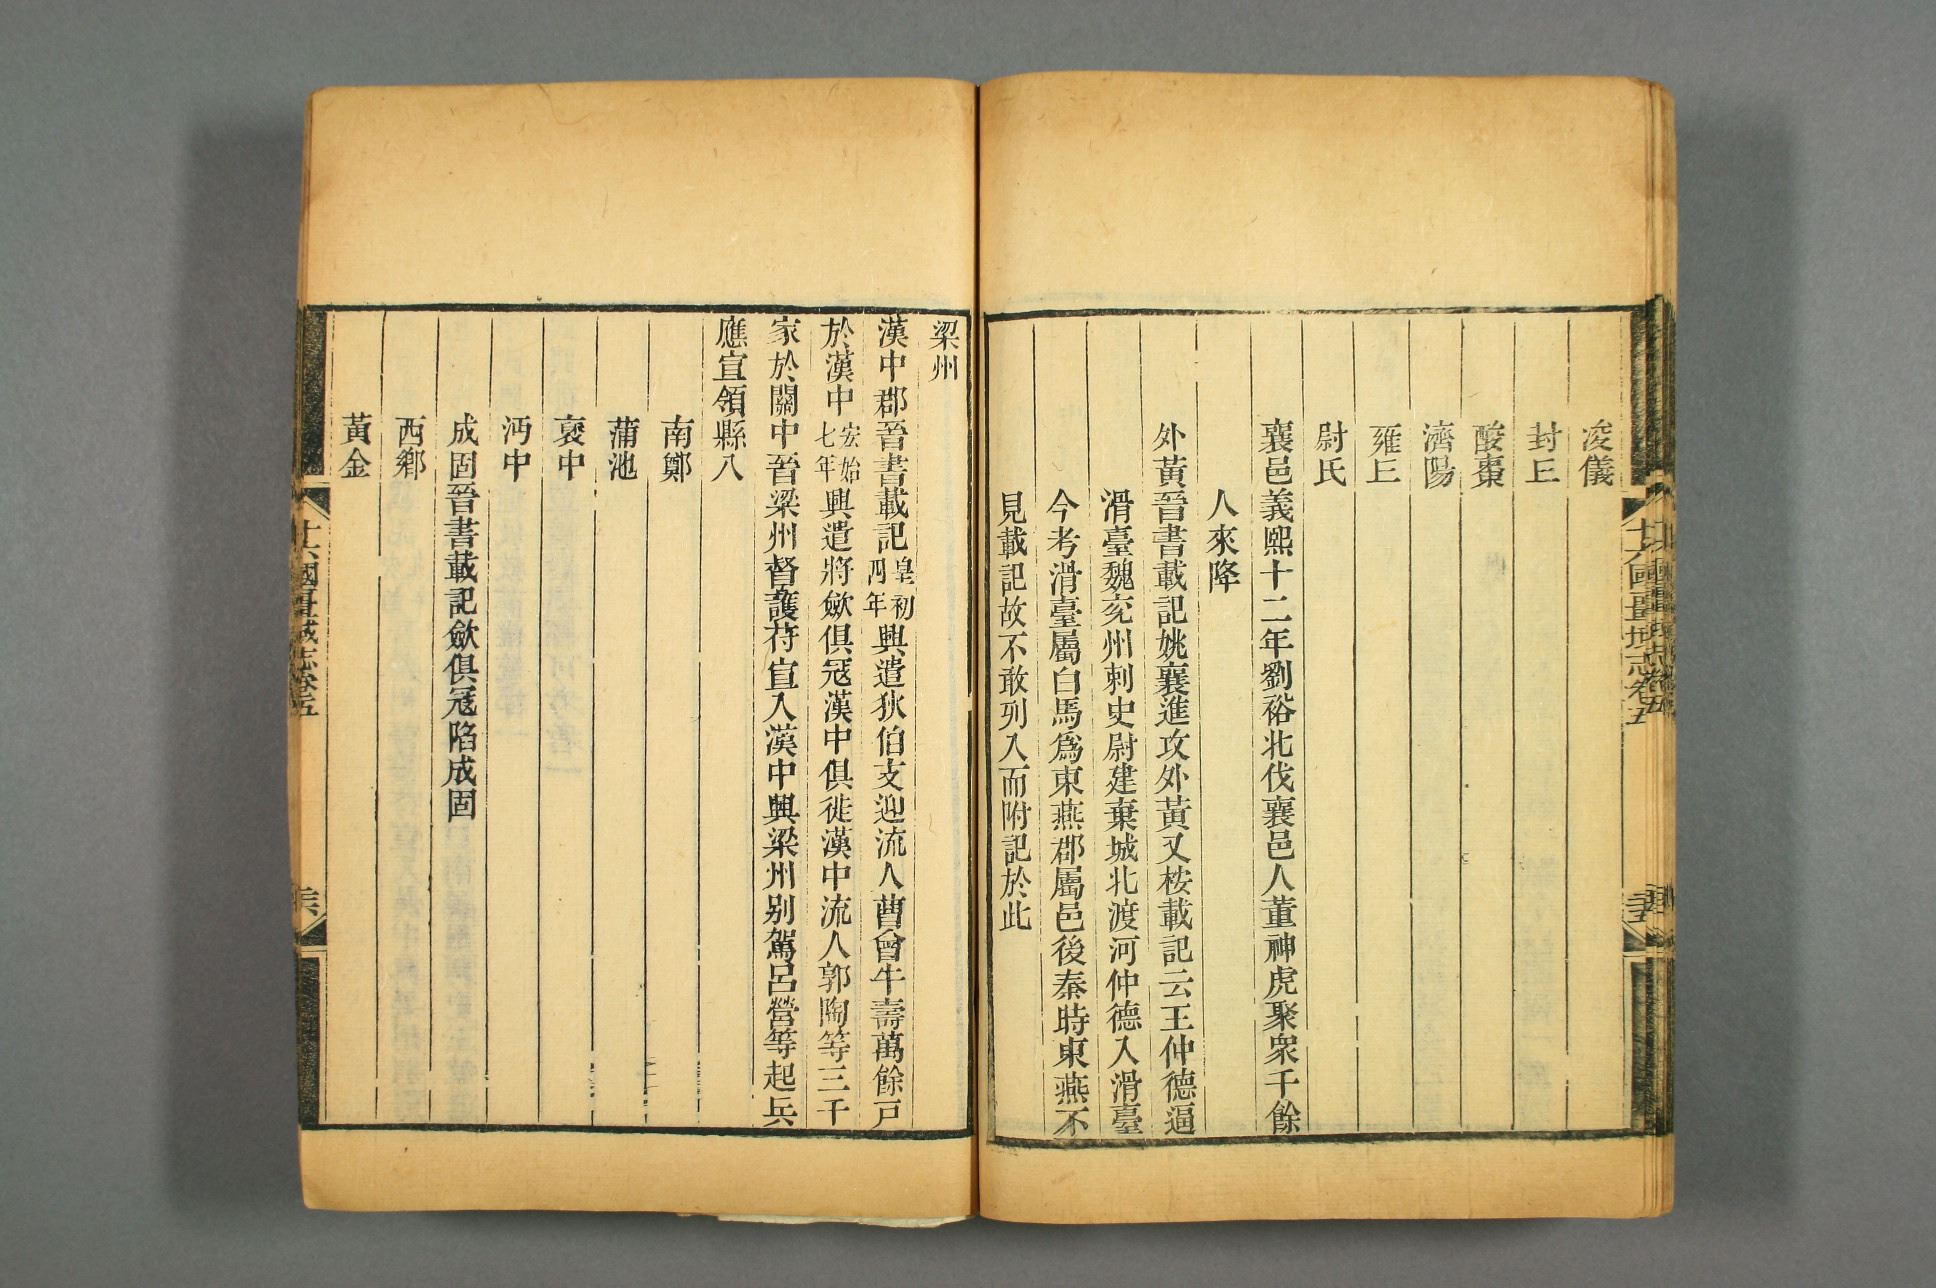 浚儀
封丘
酸棗
濟陽
雍丘
尉氏
襄邑義熙十二年劉裕北伐襄邑人董神虎聚衆千餘
人來降
外黃晉書載記姚襄進攻外黃又桉載記云王仲德逼
滑臺魏兖州刺史尉建棄城北渡河仲德入滑臺
今考滑臺屬白馬爲東燕郡屬邑後秦時東燕不
見載記故不敢列入而附記於此
十六國疆域志卷五
梁州
漢中郡晉書載記皇初四年興遣狄伯支迎流人曹會牛壽萬餘戸
於漢中宏始七年興遣將斂俱寇漢中俱徙漢中流人郭陶等三千
家於關中晉梁州督護苻宣入漢中興梁州别駕呂營等起兵
應宣領縣八
南鄭
蒲池
襃中
沔中
成固晉書載記斂俱寇陷成固
西鄉
黃金
十六國疆域志卷五